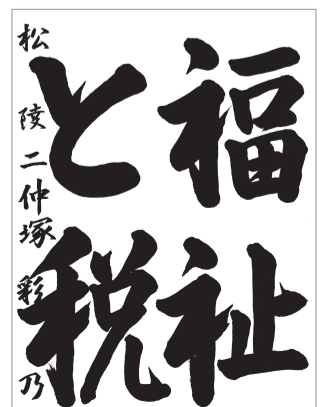 福祉
と税
松陵二仲塚彩乃